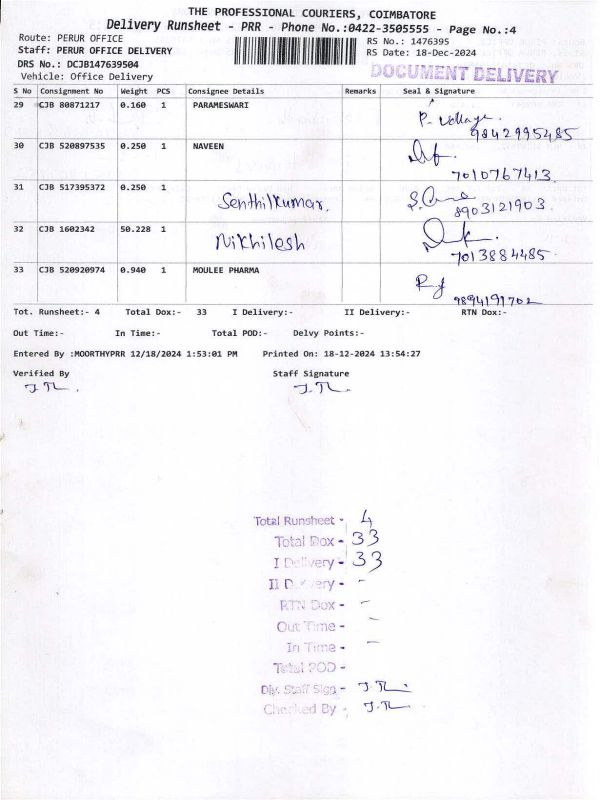 THE PROFESSIONAL COURIERS, COIMBATORE
Delivery Runsheet - PRR - Phone No.:0422-3505555 - Page No.:4
Route: PERUR OFFICE
RS No.: 1476395
Staff: PERUR OFFICE DELIVERY
RS Date: 18-Dec-2024
DRS No.: DCJB147639504
DOCUMENT DELIVERY
Vehicle: Office Delivery
S No Consignment No Weight PCS Consignee Details Remarks Seal & Signature
29 CJB 80871217 0.160 1 PARAMESWARI
9842995485
30 CJB 520897535 0.250 1 NAVEEN
7010767413
31 CJB 517395372 0.250 1 Senthilkumar.
8903121903
32 CJB 1602342 50.228 1 Nikhilesh
7013884485
33 CJB 520920974 0.940 1 MOULEE PHARMA
9894191702
Tot. Runsheet:- 4 Total Dox:- 33 I Delivery:- II Delivery:- RTN Dox:-
Out Time:- In Time:- Total POD:- Delvy Points:-
Entered By :MOORTHYPRR 12/18/2024 1:53:01 PM Printed On: 18-12-2024 13:54:27
Verified By Staff Signature
Total Runsheet - 4
Total Dox - 33
I Delivery - 33
II Delivery - -
RTN Dox - -
Out Time - -
In Time - -
Total POD -
Dly. Staff Sign -
Checked By -